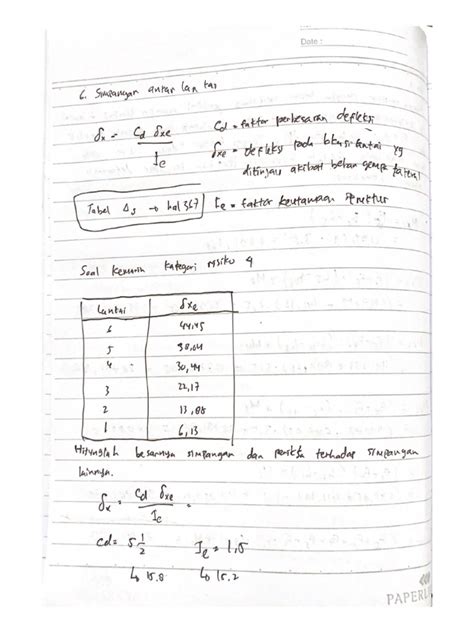 Date :
6. Simpangan antar lantai
δx = Cd δxe / Ie
Cd = faktor perbesaran defleksi
δxe = defleksi pada lokasi lantai yg
ditinjau akibat beban gempa lateral
Tabel Δs → hal 367
Ie = faktor keutamaan struktur
Soal kemarin kategori risiko 4
Lantai δxe
6 44,45
5 38,64
4 30,44
3 22,17
2 13,88
1 6,13
Hitunglah besarnya simpangan dan periksa terhadap simpangan
lainnya.
δx = Cd δxe / Ie =
Cd = 5 1/2 Ie = 1,5
↳ 15.8 ↳ 15.2
PAPERL